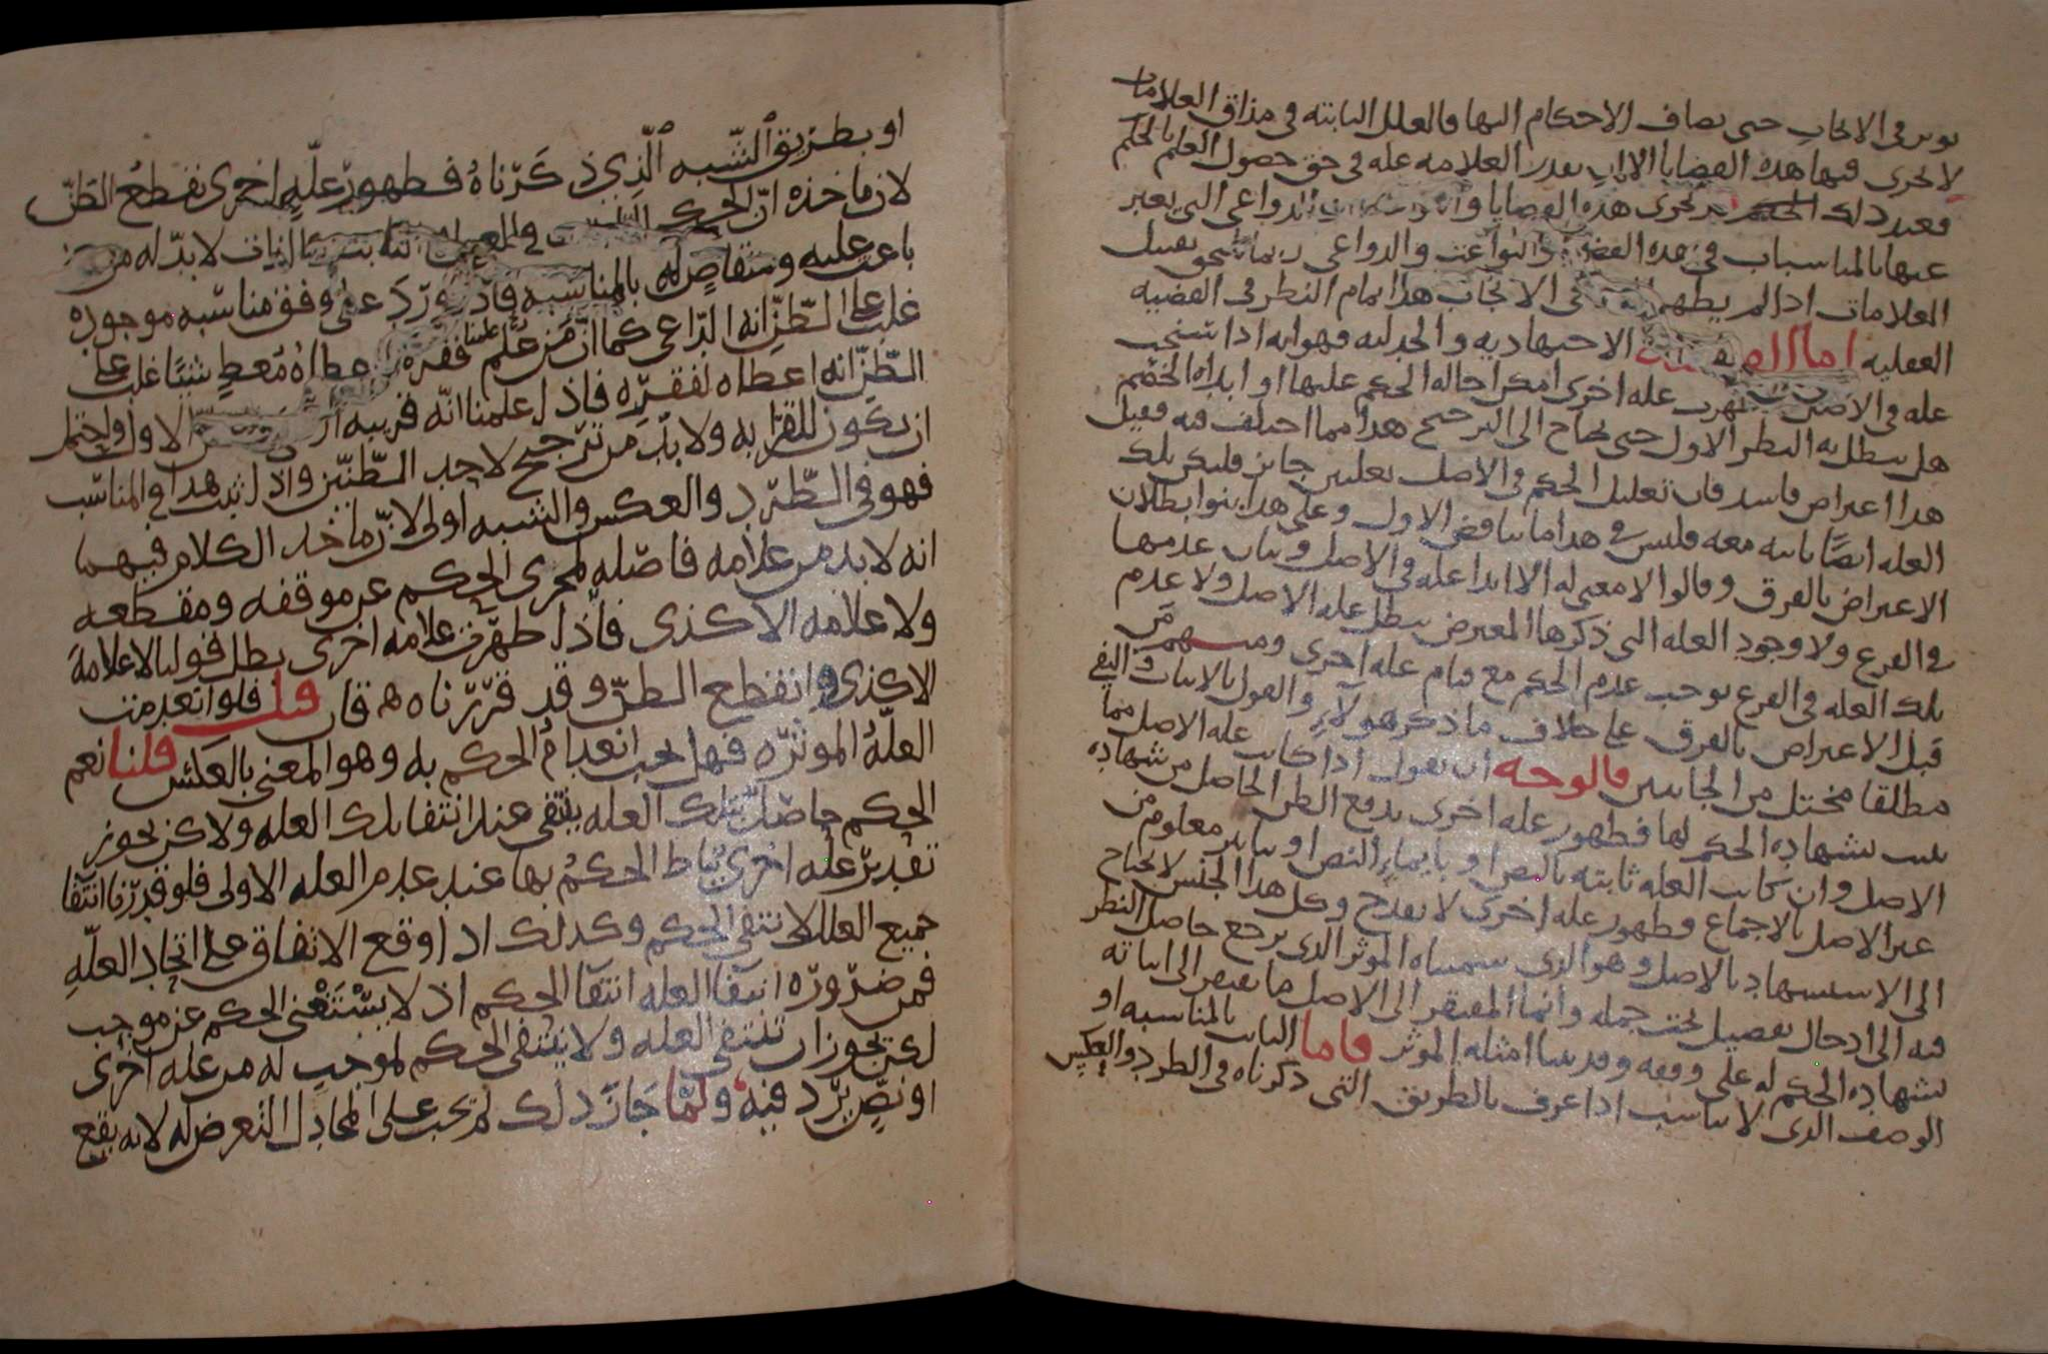 توثر في الايجاب حتى تضاف الاحكام اليها فالعلل الثابته في مذاق العلامات
لا تجرى فيها هذه القضايا الا ان بقدر العلامه عله في حق حصول العلم بالحكم
فعند ذلك تجرى هذه القضايا الدواعى التى يعبر
عنها بالمناسبات في هذه والبواعث والدواعى ربما تفصيل
العلامات اذا لم يظهر في الايجاب هذا تمام النظر في القضيه
العقليه اما الاجتهاديه والجدليه فهو انه اذا
عله في الاصل ظهرت عله اخرى امكن احاله الحكم عليها او ابداه الخصم
هل يبطل به النظر الاول حتى يحتاج الى الترجيح هذا مما اختلف فيه فقيل
هذا اعتراض فاسد فان تعليل الحكم في الاصل بعلتين جايز فليكن بتلك
العله ايضًا ثابته معه فليس في هذا ما يناقض الاول وعلى هذا بنوا بطلان
الاعتراض بالفرق وقالوا لا معنى له الا ابدا عله في الاصل وبيان عدمها
في الفرع ولا وجود العله التى ذكرها المعترض يبطل عله الاصل ولا عدم
تلك العله في الفرع يوجب عدم الحكم مع قيام عله اخرى ومنهم مَن
قبل الاعتراض بالفرق على خلاف ما ذكره هولاءِ والقول بالاثبات والنفي
مطلقا مختل من الجانبين فالوجه ان نقول اذا كانت عله الاصل مما
يثبت بشهادة الحكم لها فظهور عله اخرى يدفع الظن الحاصل من شهادة
الاصل وان كانت العله ثابته بالنص او بايماءِ النص او بتاثير معلوم من
غير الاصل بالاجماع فظهور عله اخرى لا يقدح وكل هذا الجنس لا يحتاج
الى الاستشهاد بالاصل وهو الذى سميناه الموثر الذى يرجع حاصل النظر
فيه الى ادخال تفصيل تحت جمله وانما المفتقر الى الاصل ما يفتقر الى اثباته
بشهادة الحكم له على وفقه وقد بينا امثله الموثر فاما الثابت بالمناسبه او
الوصف الذى لا يناسب اذا عرف بالطريق التى ذكرناه في الطرد والعكسِ
او بطريق الشّبه الّذي ذكَرّناهُ فظهورُ علّهٍ اخرى تقطعُ الظنّ
لان ماخذه انّ الحكم في لا بدّ له من
باعث عليه ومتقاضٍ له بالمناسبه فاذا ورَدَ على وفق مناسبه موجوده
غلب على الظنّ انه الدّاعى كما انّ مَن عُلم فقره اعطاهُ مُعطٍ شيًا غلب على
الظنّ انه اعطاه لفقرّه فاذا علمنا انّه قريبه الاول واحتمل
ان يكون للقرابه ولا بدّ من ترّجيح لاحد الظنّيّن واذا ثبت هذا في المناسب
فهو في الطرّد والعكس والشبه اولى لانّ ماخذ الكلام فيهما
انه لا بد من علامه فاصله لمجرى الحكم عن موقفه ومقطعه
ولا علامه الا كذى فاذا ظهرّت علامه اخرى بطل قولنا لا علامةَ
الا كذى وانقطع الظنّ وقد قرّرّناه فان قلت فلو انعدمت
العلّهُ الموثرّه فهل يجب انعدامُ الحكم به وهو المعنى بالعَكس قلنا نعم
الحكم حاصل بتلك العله ينتفى عند انتفا تلك العله ولا كن يجوز
تقديرّ عله اخرى يُناط الحكمُ بها عند عدم العله الاولى فلو قدّرّنا انتفا
جميع العلل لانتفى الحكم وكذلك اذا وقع الاتفاق على اتّحاد العلّهِ
فمن ضرّورّه انتفا العله انتفا الحكم اذ لا يسْتَغْنى الحكم عن موجب
لكن يجوز ان تنتفى العله ولا ينتفى الحكم لموجب له من عله اخرى
او نصٍّ يرّد فيهِ ولمّا جازَ ذلك لم يجب على المجادل التعرض له لانه يقع